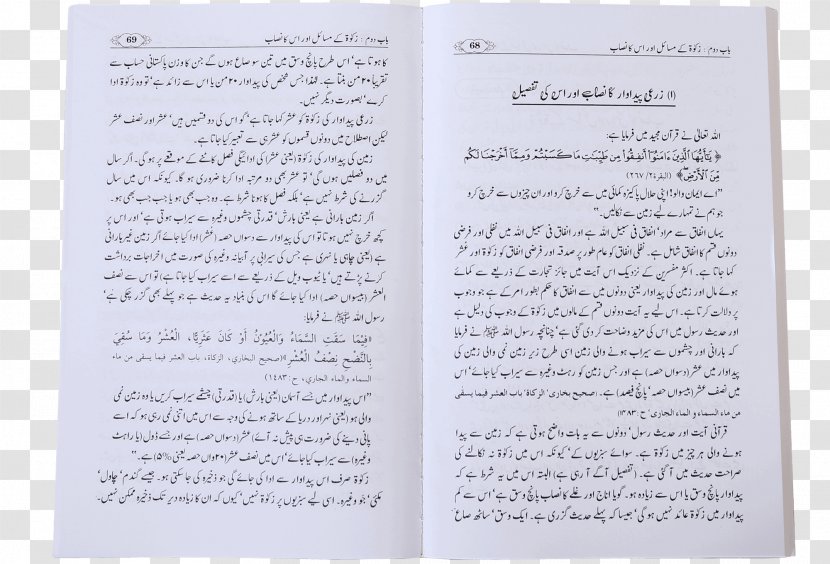 باب دوم : زکوٰۃ کے مسائل اور اس کا نصاب
68
(۱) زرعی پیداوار کا نصاب اور اس کی تفصیل
اللہ تعالیٰ نے قرآن مجید میں فرمایا ہے:
﴿ يَٰٓأَيُّهَا ٱلَّذِينَ ءَامَنُوٓا۟ أَنفِقُوا۟ مِن طَيِّبَٰتِ مَا كَسَبْتُمْ وَمِمَّآ أَخْرَجْنَا لَكُم
مِّنَ ٱلْأَرْضِ ﴾ (البقرۃ۲/ ۲۶۷)
’’اے ایمان والو! اپنی حلال پاکیزہ کمائی میں سے خرچ کرو اور ان چیزوں سے خرچ کرو
جو ہم نے تمہارے لیے زمین سے نکالیں۔‘‘
یہاں انفاق سے مراد‘ انفاق فی سبیل اللہ ہے اور انفاق فی سبیل اللہ میں نفلی اور فرضی
دونوں قسم کا انفاق شامل ہے۔ نفلی انفاق کو عام طور پر صدقہ اور فرضی انفاق کو زکوٰۃ اور عشر
کہا جاتا ہے۔ اکثر مفسرین کے نزدیک اس آیت میں جائز تجارت کے ذریعے سے کمائے
ہوئے مال اور زمین کی پیداوار میں سے‘ دونوں میں سے انفاق کا حکم بطور امر کے ہے جو وجوب
پر دلالت کرتا ہے۔ اس لیے یہ آیت دونوں قسم کے مالوں میں زکوٰۃ کے وجوب کی دلیل ہے
اور حدیث رسول میں اس کی مزید وضاحت کر دی گئی ہے‘ چنانچہ رسول اللہ ﷺ نے فرمایا
کہ بارانی اور چشموں سے سیراب ہونے والی زمین اسی طرح زیر زمین نمی والی زمین کی
پیداوار میں عشر (دسواں حصہ) ہے اور جس زمین کو رہٹ وغیرہ سے سیراب کیا جائے‘ اس
میں نصف عشر (بیسواں حصہ‘ پانچ فیصد) ہے۔ (صحیح بخاری‘ الزکاۃ‘ باب العشر فیما یسقی
من ماء السماء و الماء الجاری‘ ح:۱۴۸۳)
قرآنی آیت اور حدیث رسول‘ دونوں سے یہ بات واضح ہوتی ہے کہ زمین سے پیدا
ہونے والی ہر چیز میں زکوٰۃ ہے۔ سوائے سبزیوں کے‘ کیونکہ اس میں زکوٰۃ نہ نکالنے کی
صراحت حدیث میں آ گئی ہے۔ (تفصیل آگے آ رہی ہے) البتہ اس میں یہ شرط ہے کہ
پیداوار پانچ وسق یا اس سے زیادہ ہو۔ گویا اناج اور غلے کا نصاب پانچ وسق ہے‘ اس سے کم
پیداوار میں زکوٰۃ عائد نہیں ہو گی‘ جیسا کہ پہلے حدیث گزری ہے۔ ایک وسق‘ ساٹھ صاع
باب دوم : زکوٰۃ کے مسائل اور اس کا نصاب
69
کا ہوتا ہے‘ اس طرح پانچ وسق میں تین سو صاع ہوں گے جن کا وزن پاکستانی حساب سے
تقریباً ۲۰ من بنتا ہے۔ لہٰذا جس شخص کی پیداوار ۲۰ من یا اس سے زائد ہے‘ تو وہ زکوٰۃ ادا
کرے‘ بصورت دیگر نہیں۔
زرعی پیداوار کی زکوٰۃ کو عشر کہا جاتا ہے‘ گو اس کی دو قسمیں ہیں‘ عشر اور نصف عشر
لیکن اصطلاح میں دونوں قسموں کو عشر ہی سے تعبیر کیا جاتا ہے۔
زمین کی پیداوار کی زکوٰۃ (یعنی عشر) کی ادائیگی فصل کاٹنے کے موقعے پر ہو گی۔ اگر سال
میں دو فصلیں ہوں گی‘ تو عشر بھی دو مرتبہ ادا کرنا ضروری ہو گا۔ کیونکہ اس میں سال
گزرنے کی شرط نہیں ہے‘ بلکہ فصل کا ہونا شرط ہے۔ وہ جب بھی ہو یا جب جب بھی ہو۔
اگر زمین بارانی ہے یعنی بارش‘ قدرتی چشموں وغیرہ سے سیراب ہوتی ہے‘ اور اس پر
کچھ خرچ نہیں ہوتا تو اس کی پیداوار سے دسواں حصہ (عُشر) ادا کیا جائے اگر زمین غیر بارانی
ہے (یعنی چاہی یا نہری ہے جس کی سیرابی پر آبیانہ وغیرہ کی صورت میں اخراجات برداشت
کرنے پڑتے ہیں‘ یا ٹیوب ویل کے ذریعے سے اسے سیراب کیا جاتا ہے) تو اس سے نصف
العشر (بیسواں حصہ) ادا کیا جائے گا اس کی بنیاد یہ حدیث ہے جو پہلے بھی گزر چکی ہے‘
رسول اللہ ﷺ نے فرمایا:
«فِيمَا سَقَتِ السَّمَاءُ وَالْعُيُونُ أَوْ كَانَ عَثَرِيًّا، الْعُشْرُ وَمَا سُقِيَ
بِالنَّضْحِ نِصْفُ الْعُشْرِ»(صحیح البخاري، الزكاة، باب العشر فيما يسقى من ماء
السماء والماء الجاري، ح:۱۴۸۳)
’’اس پیداوار میں جسے آسمان (یعنی بارش) یا (قدرتی) چشمے سیراب کریں یا وہ زمین نمی
والی ہو (یعنی نہر اور دریا کے ساتھ ہونے کی وجہ سے اس میں اتنی نمی رہتی ہو کہ اسے
پانی دینے کی ضرورت ہی پیش نہ آئے) عشر (دسواں حصہ) ہے اور جسے ڈول (یا راہٹ
وغیرہ) سے سیراب کیا جائے‘ اس میں نصف عشر (۲۰واں حصہ یعنی ۵%) ہے۔‘‘
زکوٰۃ صرف اس پیداوار سے ادا کی جائے گی جو ذخیرہ کی جا سکتی ہو۔ جیسے گندم‘ چاول‘
مکئی‘ جَو وغیرہ۔ اسی لیے سبزیوں پر زکوٰۃ نہیں‘ کیوں کہ ان کا زیادہ دیر تک ذخیرہ ممکن نہیں۔